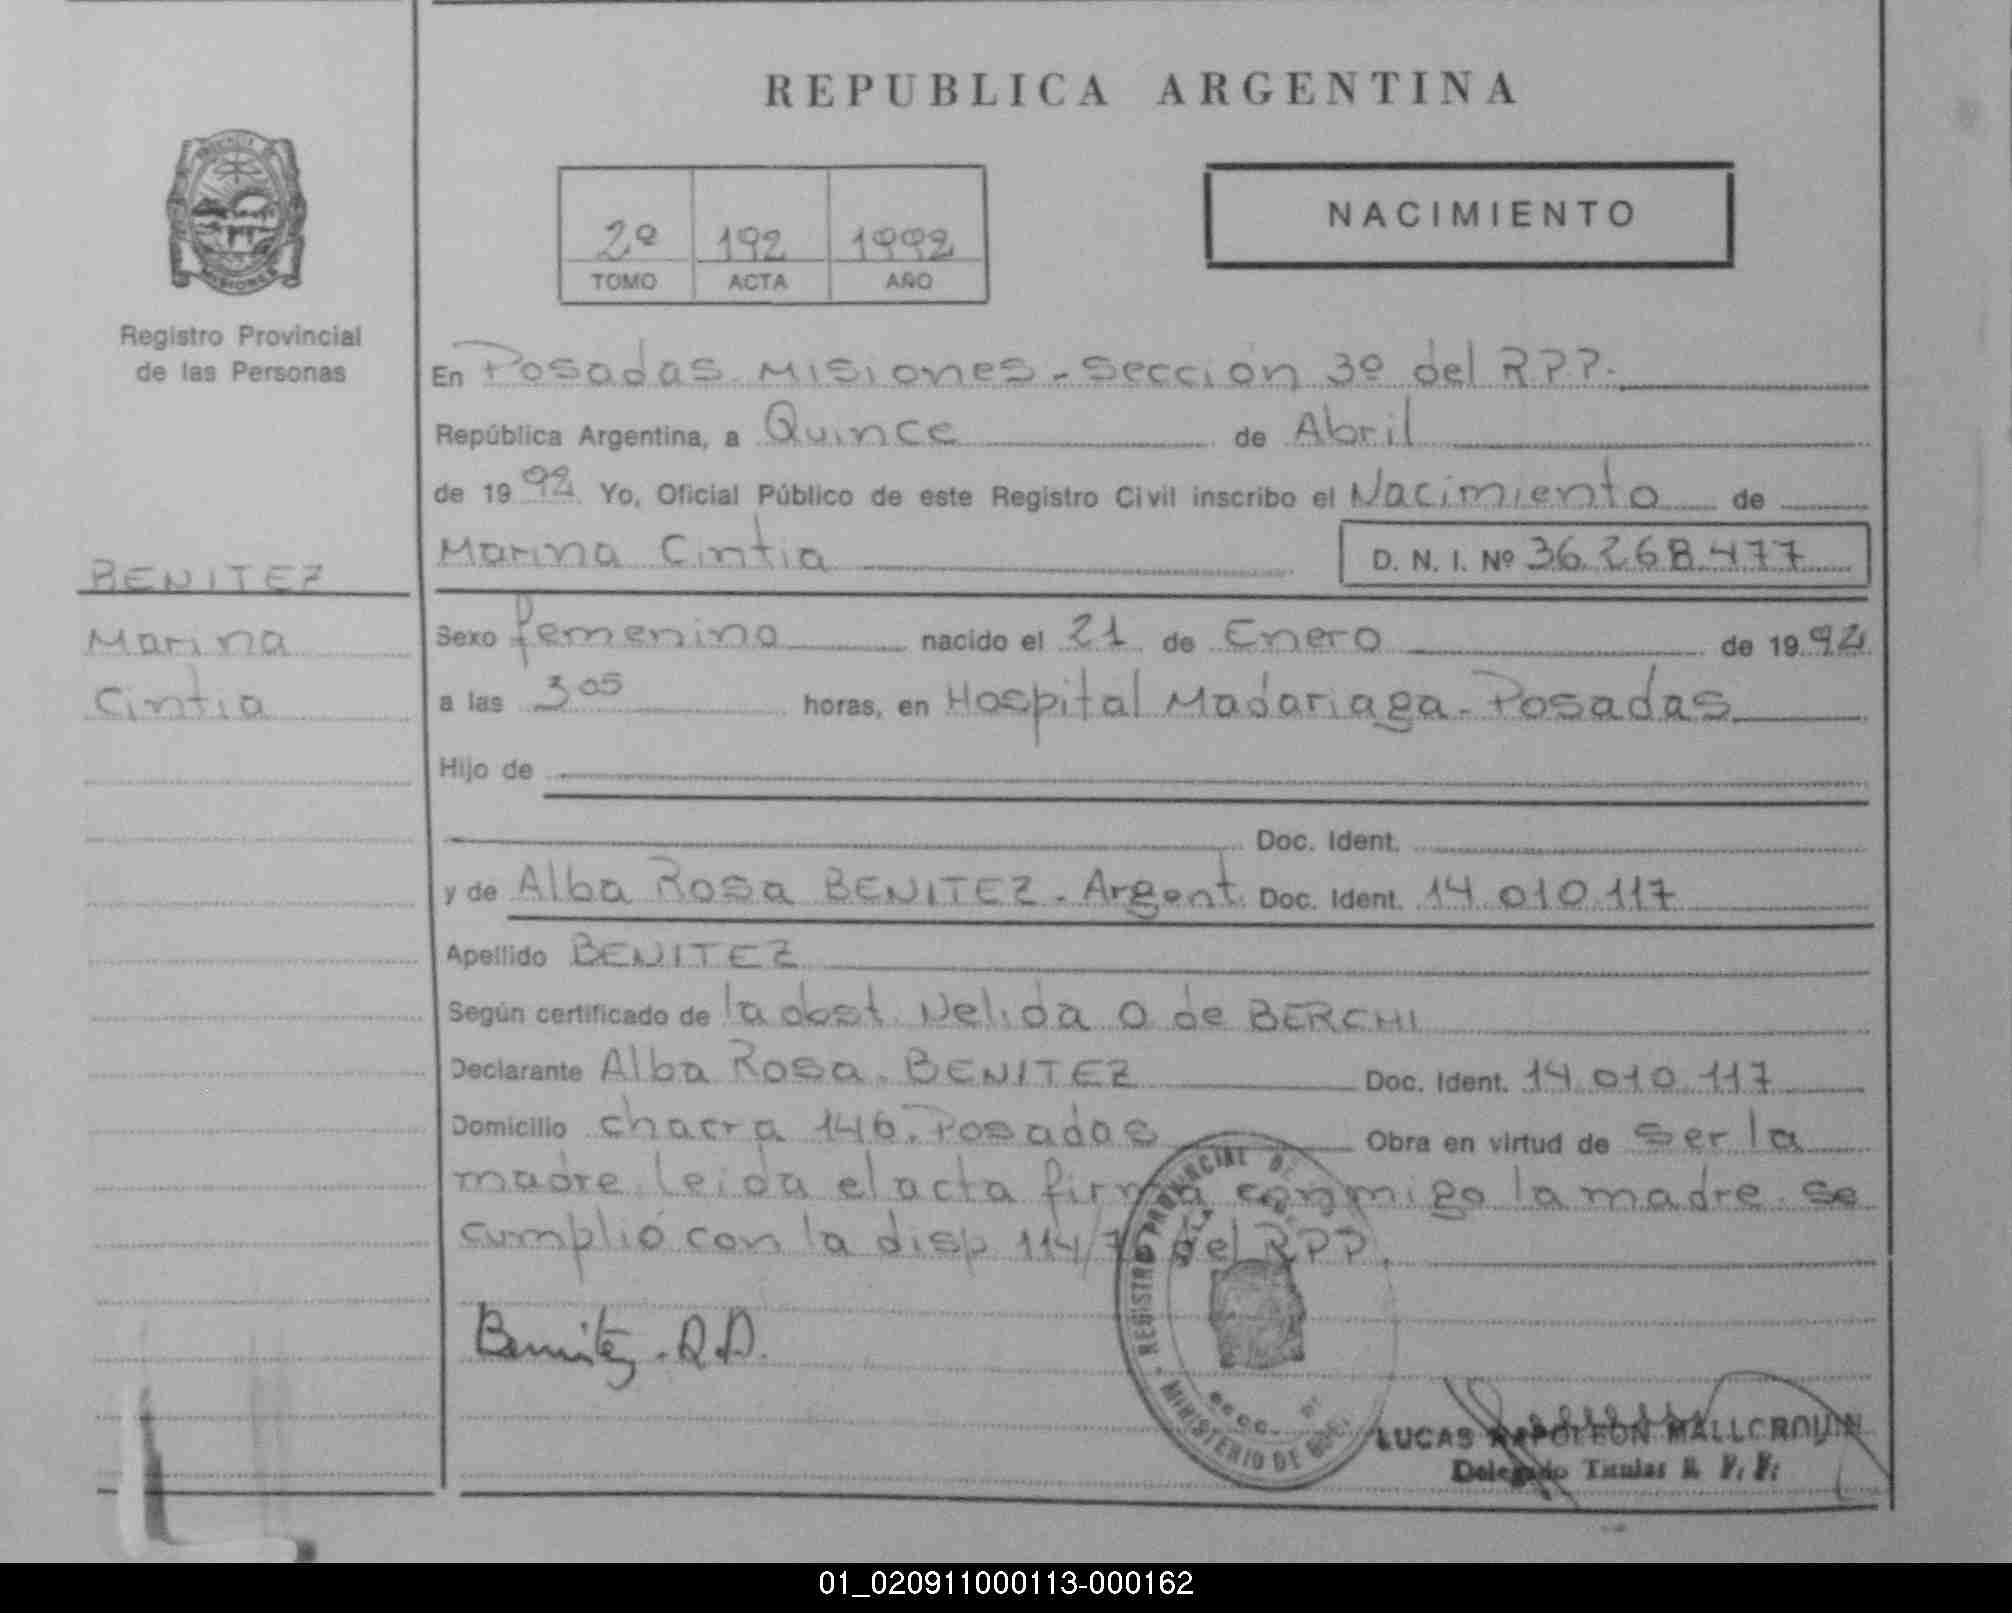 REPUBLICA ARGENTINA
NACIMIENTO
2º 192 1992
TOMO ACTA AÑO
Registro Provincial
de las Personas
BENITEZ
Marina
Cintia
En Posadas Misiones - Sección 3º del RPP.
República Argentina, a Quince de Abril
de 1992 Yo, Oficial Público de este Registro Civil inscribo el Nacimiento de
Marina Cintia D. N. I. Nº 36.268.477
Sexo femenino nacido el 21 de Enero de 1992
a las 3 05 horas, en Hospital Madariaga - Posadas
Hijo de
Doc. Ident.
y de Alba Rosa BENITEZ - Argent. Doc. Ident. 14.010.117
Apellido BENITEZ
Según certificado de la obst. Nelida O de BERCHI
Declarante Alba Rosa BENITEZ Doc. Ident. 14.010.117
Domicilio chacra 146. Posadas Obra en virtud de ser la
madre. leida el acta firma conmigo la madre. se
cumplió con la disp 114/ del RPP.
Benitez. R.A.
REGISTRO PROVINCIAL DE LAS
MINISTERIO DE
LUCAS NAPOLEON
Delegado Titular R. P. P.
01_020911000113-000162